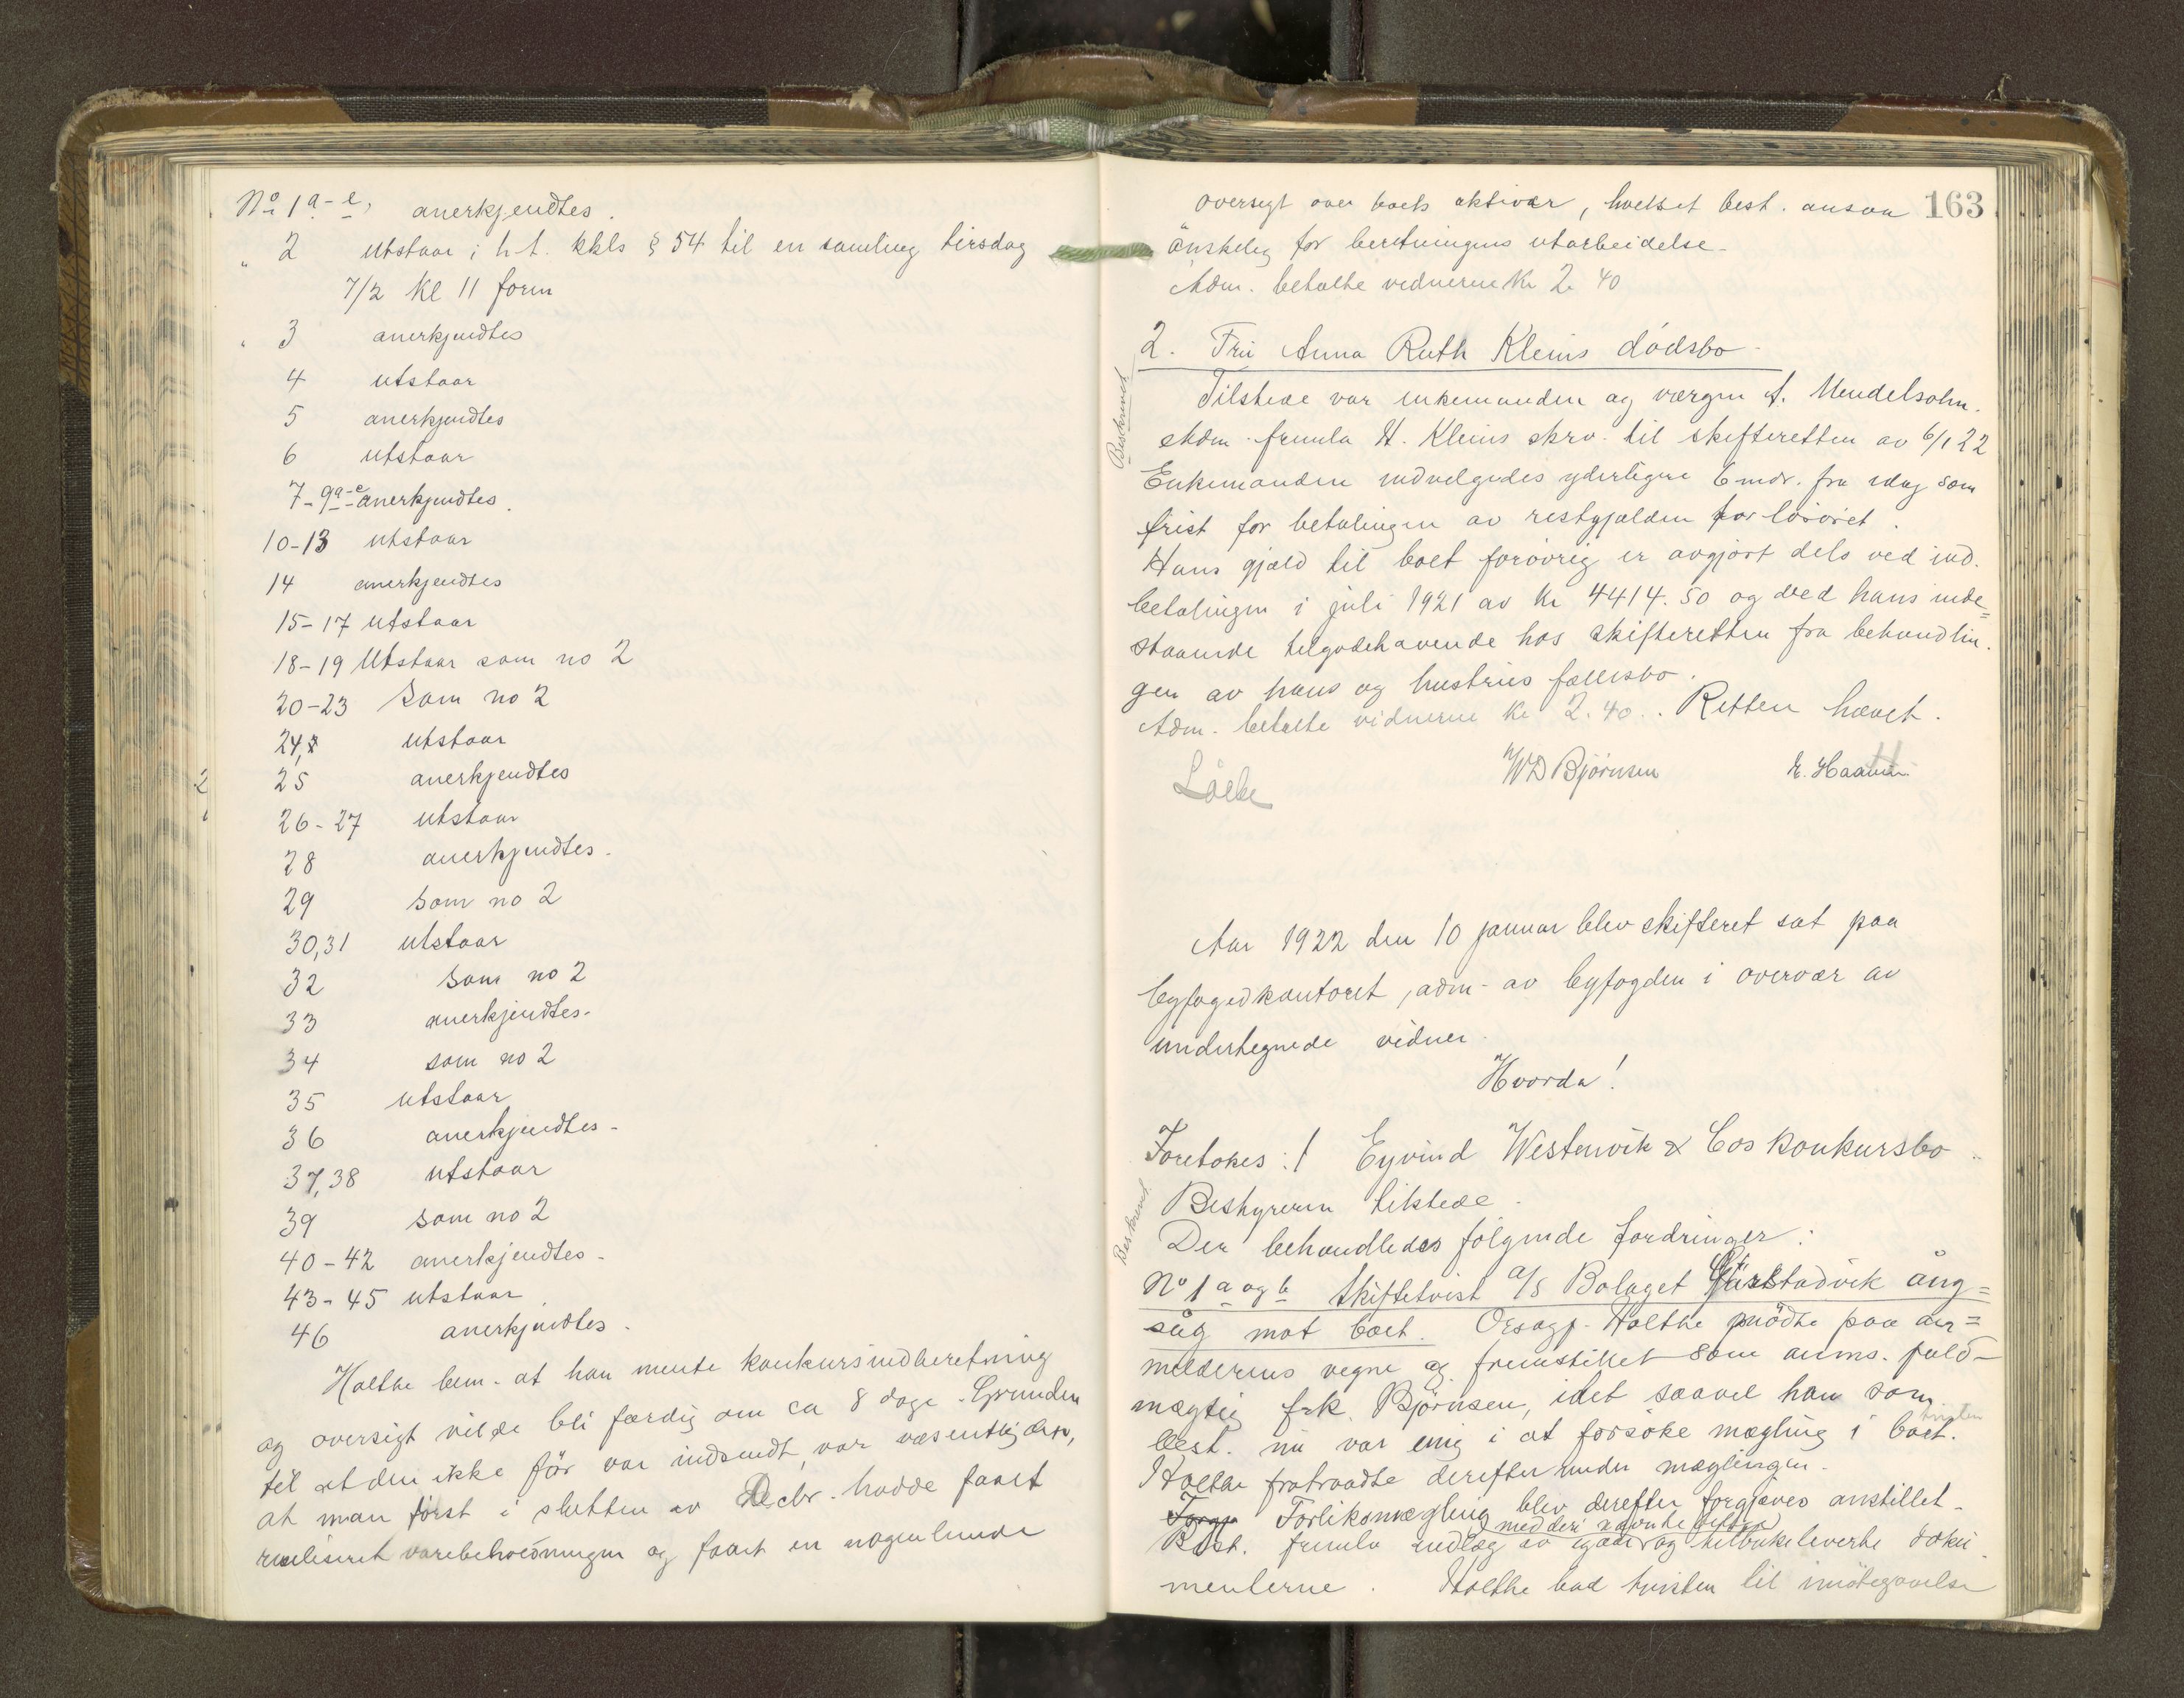 No 1 a-e, anerkjendtes.
" 2 utstaar i h.t. kkls § 54 til en samling tirsdag
7/2 kl 11 form
" 3 anerkjendtes
4 utstaar
5 anerkjendtes
6 utstaar
7-9a-e anerkjendtes.
10-13 utstaar
14 anerkjendtes
15-17 utstaar
18-19 Utstaar som no 2
20-23 som no 2
24, utstaar
25 anerkjendtes
26-27 utstaar
28 anerkjendtes.
29 som no 2
30,31 utstaar
32 som no 2
33 anerkjendtes.
34 som no 2
35 utstaar
36 anerkjendtes-
37,38 utstaar
39 som no 2
40-42 anerkjendtes-
43-45 utstaar
46 anerkjendtes.
Holthe bem. at han mente konkursindberetning
og oversigt vilde bli færdig om ca 8 dage. Grunden
til at den ikke för var indsendt, var væsentlig den,
at man först i slutten av Decbr. hadde faaet
realiseret varebeholdningen og faaet en nogenlunde
163
oversigt over boets aktiver, hvilket best. ansaa
önskelig for beretningens utarbeidelse-
Adm. betalte vidnerne Kr 2.40
2. Fru Anna Ruth Kleins dödsbo-
Beskrevet
Tilstede var enkemanden og værgen A. Mendelsohn.
Adm. fremla H. Kleins skrv. til skifteretten av 6/1 22
Enkemanden indvilgedes yderligere 6 mdr. fra idag som
frist for betalingen av restgjælden for lösöret.
Hans gjæld til boet forövrig er avgjort dels ved ind.
betalingen i juli 1921 av Kr 4414.50 og ved hans inde=
staaende tilgodehavende hos skifteretten fra behandlin.
gen av hans og hustrus fællesbo.
Adm. betalte vidnerne Kr 2.40.. Retten hævet.
WD Björnsen
Aar 1922 den 10 januar blev skifteret sat paa
byfogedkontoret, adm. av byfogden i overvær av
undertegnede vidner.
Hvorda!
Foretokes: 1 Eyvind Westenvik & Cos konkursbo
Beskrevet.
Bestyreren tilstede.
Der behandledes fölgende fordringer:
No 1 a og b Skiftetvist A/S Bolaget ång=
såg mot boet. Orsagf. Holthe mödte paa an=
melderens vegne og fremstillet som anms. fuld-
mægtig frk. Björnsen, idet saavel han som
best. nu var enig i at forsöke mægling i tvisten boet.
Holthe fratraadte derefter under mæglingen.
Forliksmægling blev derefter forgjæves anstillet.
Best. fremla indlæg av igaar med deri nævnte bilag og tilbakeleverte doku
menterne. Holthe bad tvisten til imötegaaelse